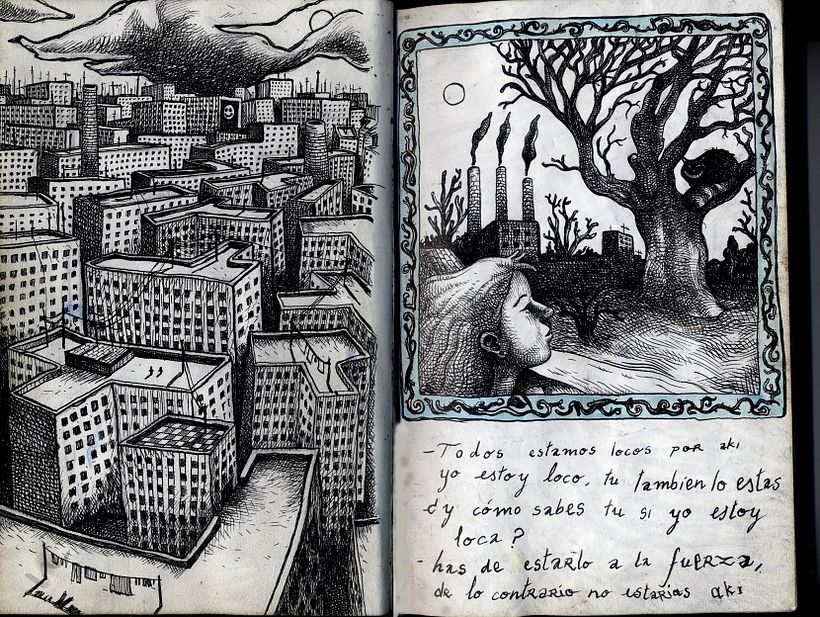 -Todos estamos locos por aki
yo estoy loco, tu tambien lo estas
¿y cómo sabes tu si yo estoy
loca?
-has de estarlo a la fuerza,
de lo contrario no estarias aki